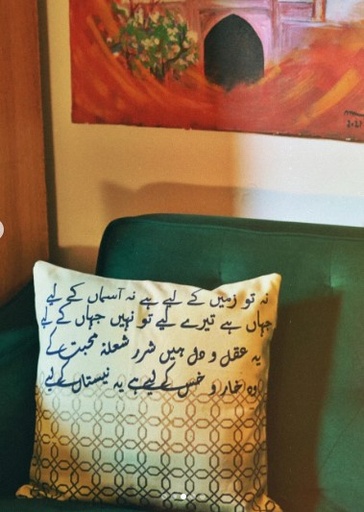 نہ تو زمیں کے لیے ہے نہ آسماں کے لیے
جہاں ہے تیرے لیے تو نہیں جہاں کے لیے
یہ عقل و دل ہیں شرر شعلۂ محبت کے
وہ خار و خس کے لیے ہے یہ نیستاں کے لیے